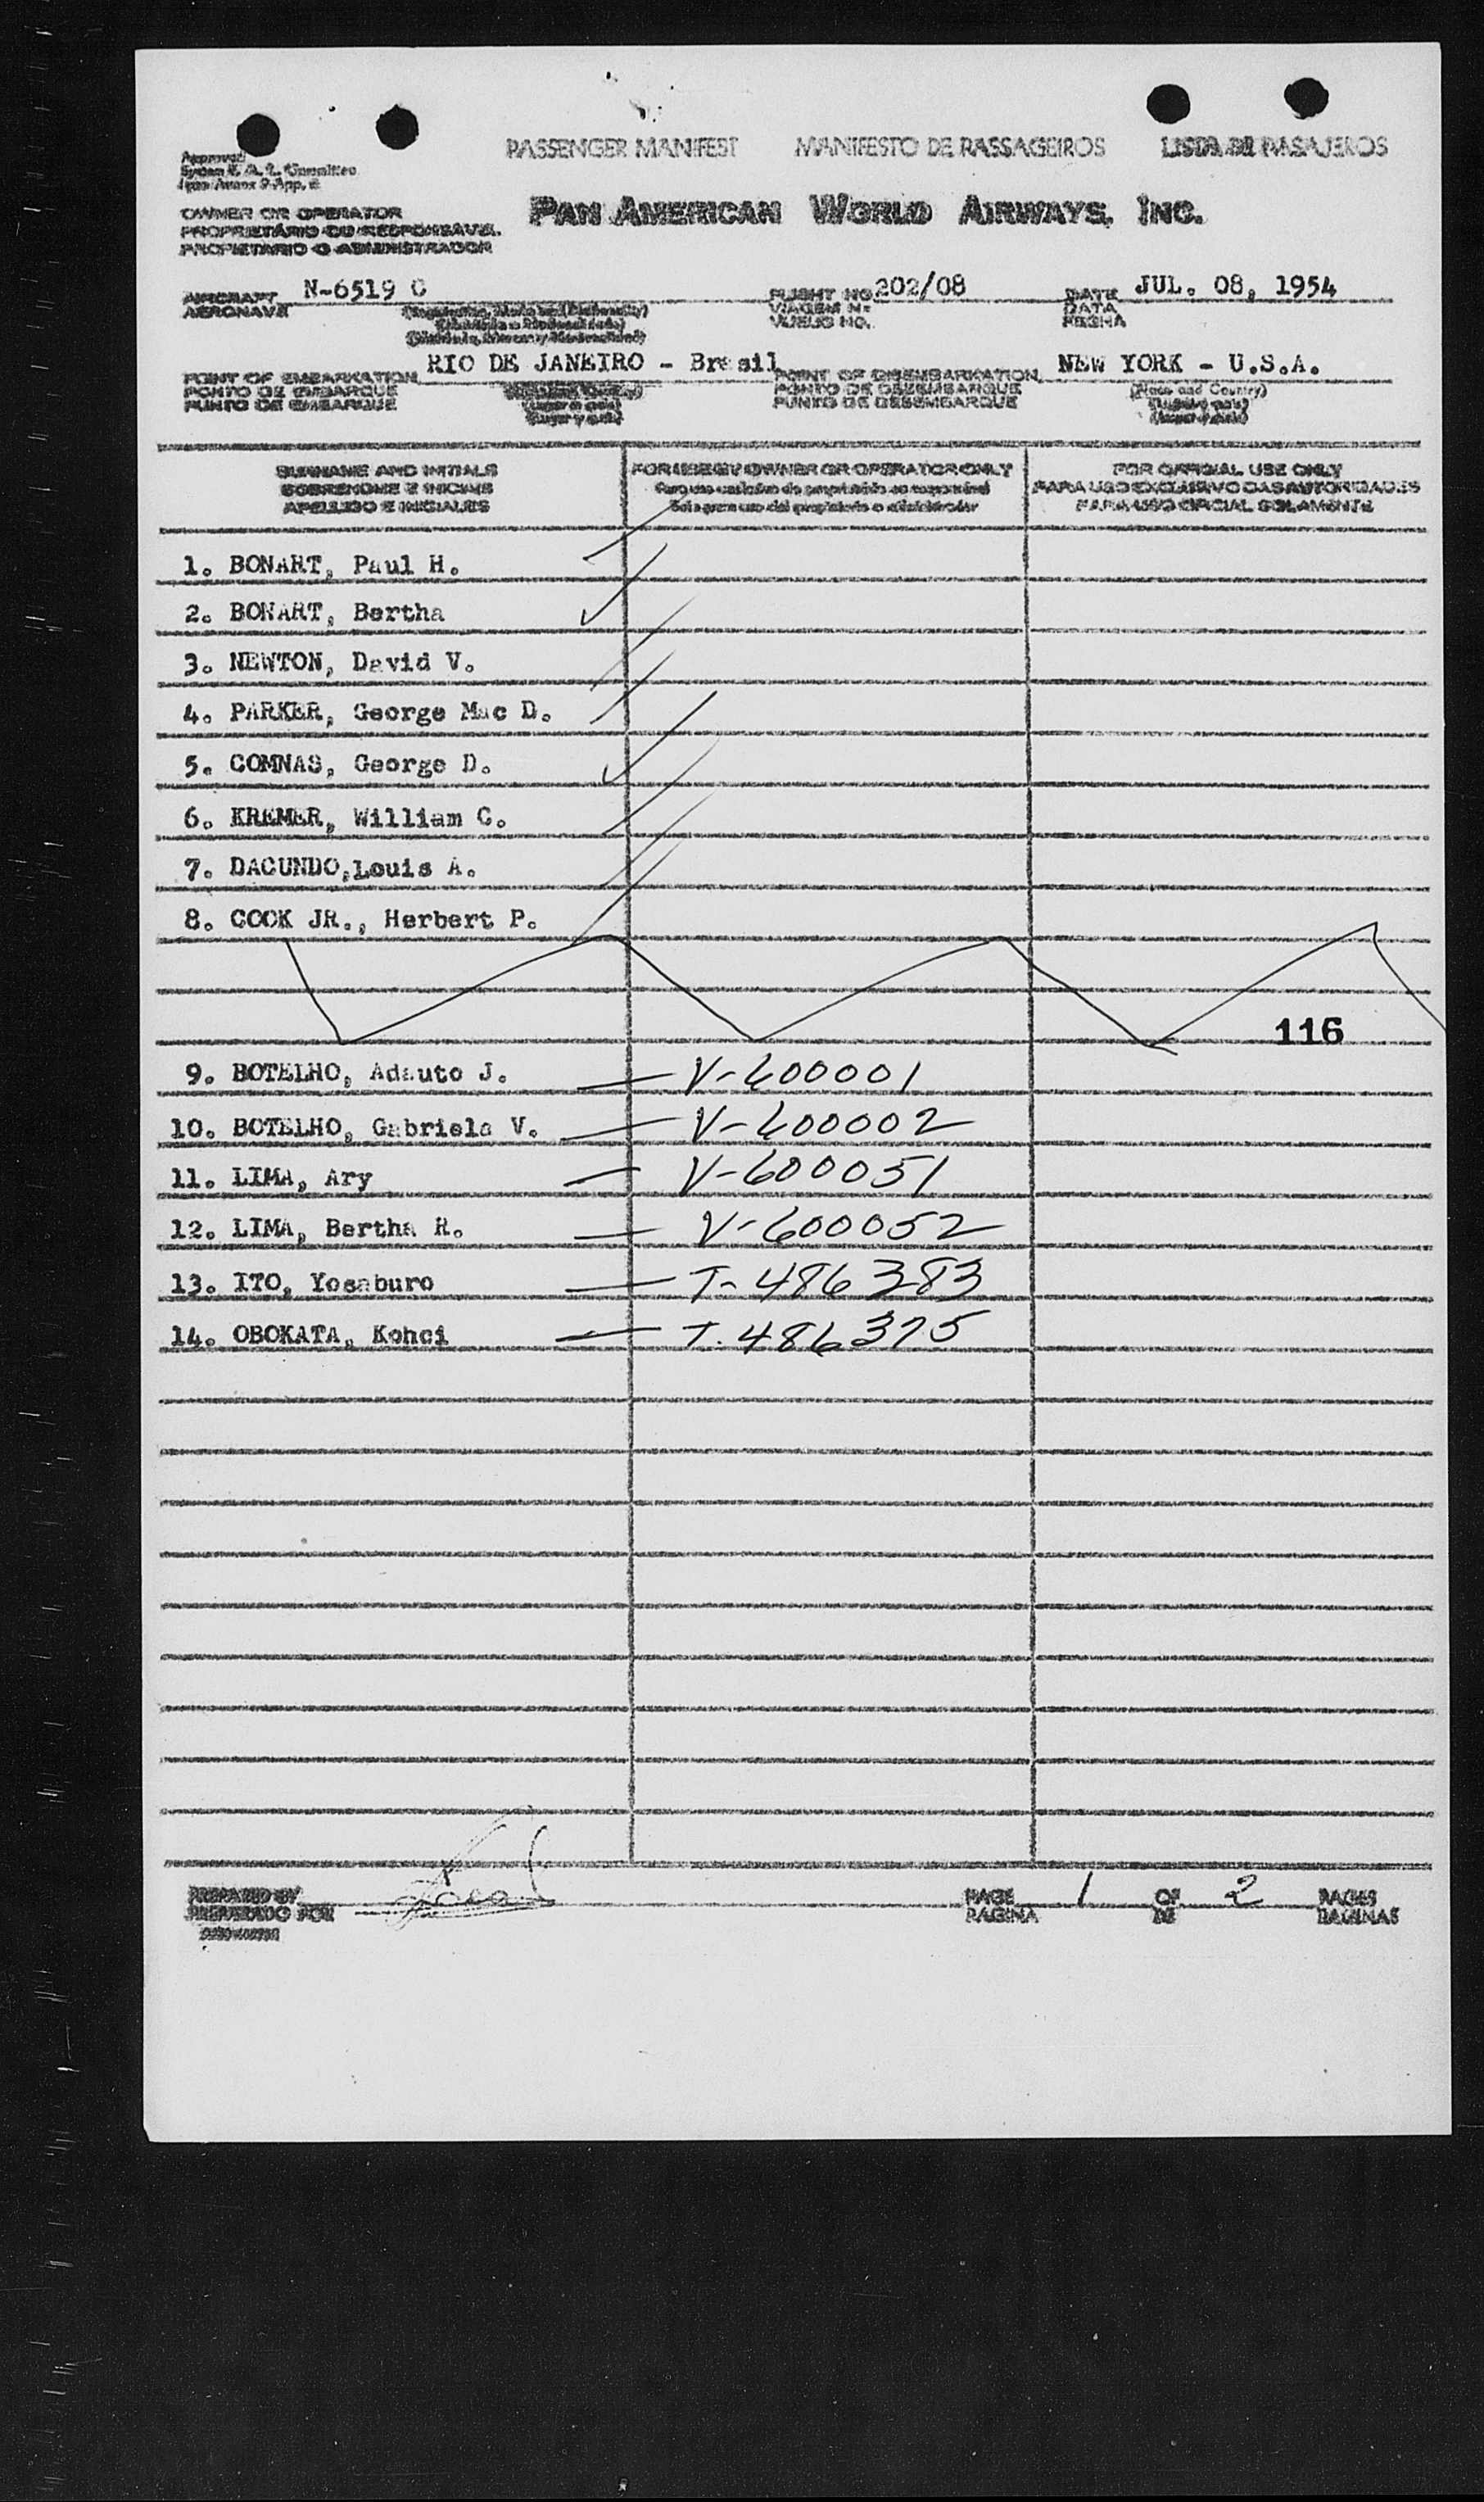 PASSENGER MANIFEST MANIFESTO DE PASSAGEIROS LISTA DE PASAJEROS
Approved
System F. A. L. Committee
Icao Annex 9-App. 2
PAN AMERICAN WORLD AIRWAYS, INC.
OWNER OR OPERATOR
PROPRIETÁRIO OU RESPONSAVEL
PROPIETARIO O ADMINISTRADOR
AIRCRAFT N-6519 C FLIGHT NO. 202/08 DATE JUL. 08, 1954
AERONAVE VIAGEM Nº DATA
VUELO NO. FECHA
RIO DE JANEIRO - Brasil NEW YORK - U.S.A.
POINT OF EMBARKATION POINT OF DISEMBARKATION (Place and Country)
PONTO DE EMBARQUE PONTO DE DESEMBARQUE
PUNTO DE EMBARQUE PUNTO DE DESEMBARQUE
SURNAME AND INITIALS FOR USE BY OWNER OR OPERATOR ONLY FOR OFFICIAL USE ONLY
SOBRENOME E INICIAIS Para uso exclusivo do proprietário ou responsável PARA USO EXCLUSIVO DAS AUTORIDADES
APELLIDO E INICIALES Solo para uso del propietario o administrador PARA USO OFICIAL SOLAMENTE
1. BONART, Paul H.
2. BONART, Bertha
3. NEWTON, David V.
4. PARKER, George Mac D.
5. COMNAS, George D.
6. KREMER, William C.
7. DACUNDO,Louis A.
8. COOK JR., Herbert P.
116
9. BOTELHO, Adauto J. — V-600001
10. BOTELHO, Gabriela V. — V-600002
11. LIMA, Ary — V-600051
12. LIMA, Bertha R. — V-600052
13. ITO, Yosaburo — T-486383
14. OBOKATA, Kohci — T-486375
PREPARED BY PAGE 1 OF 2 PAGES
PREPARADO POR PAGINA DE PAGINAS